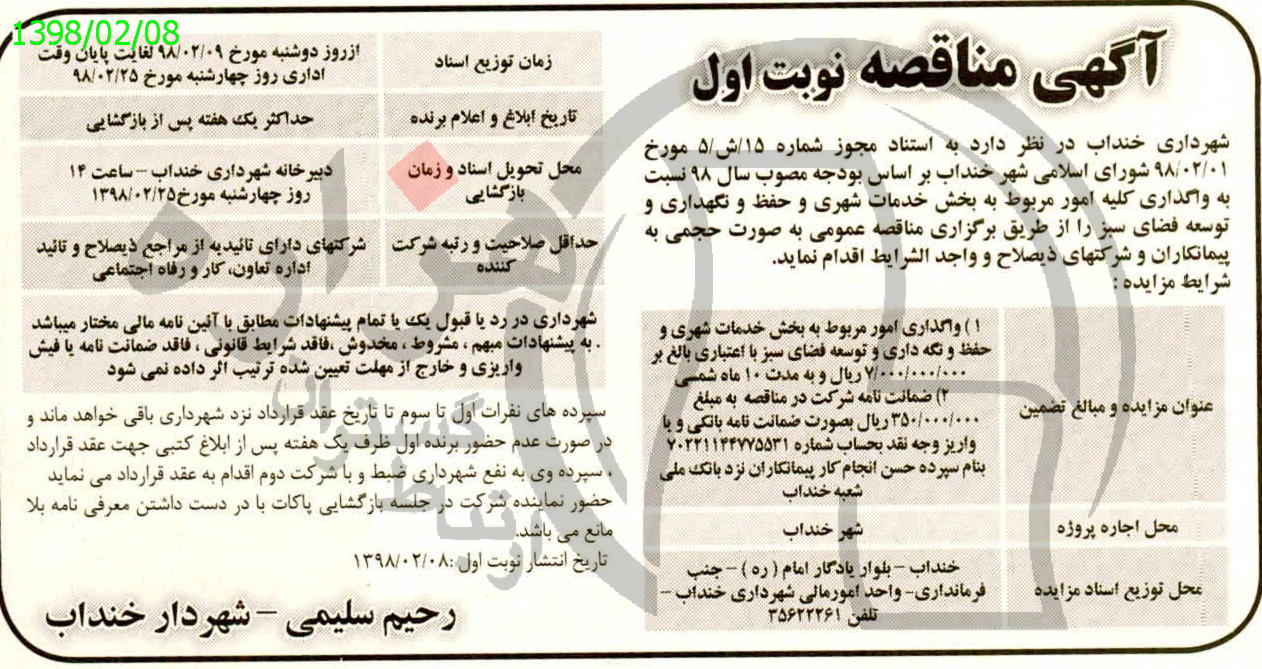 1398/02/08
آگهی مناقصه نوبت اول
شهرداری خنداب در نظر دارد به استناد مجوز شماره ۱۵/ش/۵ مورخ
۹۸/۰۲/۰۱ شورای اسلامی شهر خنداب بر اساس بودجه مصوب سال ۹۸ نسبت
به واگذاری کلیه امور مربوط به بخش خدمات شهری و حفظ و نگهداری و
توسعه فضای سبز را از طریق برگزاری مناقصه عمومی به صورت حجمی به
پیمانکاران و شرکتهای ذیصلاح و واجد الشرایط اقدام نماید.
شرایط مزایده :
عنوان مزایده و مبالغ تضمین
۱) واگذاری امور مربوط به بخش خدمات شهری و
حفظ و نگه داری و توسعه فضای سبز با اعتباری بالغ بر
۷/۰۰۰/۰۰۰/۰۰۰ ریال و به مدت ۱۰ ماه شمسی
۲) ضمانت نامه شرکت در مناقصه به مبلغ
۳۵۰/۰۰۰/۰۰۰ ریال بصورت ضمانت نامه بانکی و یا
واریز وجه نقد بحساب شماره ۷۰۲۲۱۱۴۴۷۷۵۵۳۱
بنام سپرده حسن انجام کار پیمانکاران نزد بانک ملی
شعبه خنداب
محل اجاره پروژه
شهر خنداب
محل توزیع اسناد مزایده
خنداب – بلوار یادگار امام ( ره ) – جنب
فرمانداری- واحد امورمالی شهرداری خنداب –
تلفن ۳۵۶۲۲۲۶۱
زمان توزیع اسناد
ازروز دوشنبه مورخ ۹۸/۰۲/۰۹ لغایت پایان وقت
اداری روز چهارشنبه مورخ ۹۸/۰۲/۲۵
تاریخ ابلاغ و اعلام برنده
حداکثر یک هفته پس از بازگشایی
محل تحویل اسناد و زمان
بازگشایی
دبیرخانه شهرداری خنداب – ساعت ۱۴
روز چهارشنبه مورخ۱۳۹۸/۰۲/۲۵
حداقل صلاحیت و رتبه شرکت
کننده
شرکتهای دارای تائیدیه از مراجع ذیصلاح و تائید
اداره تعاون، کار و رفاه اجتماعی
شهرداری در رد یا قبول یک یا تمام پیشنهادات مطابق با آئین نامه مالی مختار میباشد
. به پیشنهادات مبهم ، مشروط ، مخدوش ،فاقد شرایط قانونی ، فاقد ضمانت نامه یا فیش
واریزی و خارج از مهلت تعیین شده ترتیب اثر داده نمی شود
سپرده های نفرات اول تا سوم تا تاریخ عقد قرارداد نزد شهرداری باقی خواهد ماند و
در صورت عدم حضور برنده اول ظرف یک هفته پس از ابلاغ کتبی جهت عقد قرارداد
، سپرده وی به نفع شهرداری ضبط و با شرکت دوم اقدام به عقد قرارداد می نماید
حضور نماینده شرکت در جلسه بازگشایی پاکات با در دست داشتن معرفی نامه بلا
مانع می باشد.
تاریخ انتشار نوبت اول :۱۳۹۸/۰۲/۰۸
رحیم سلیمی – شهردار خنداب